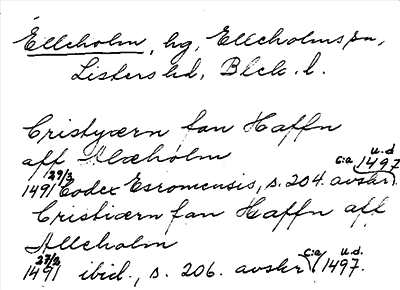 Ellcholm, hg, Ellcholms sn,
Listers hd, Blek. l.
Cristyærn fan Haffn
aff Alæholm
1491 29/3 Codex Esromensis, s. 204. avskr. c:a 1497 u.d
Cristiærn fan Haffn aff
Allcholm
1491 27/2 ibid., s. 206. avskr. (c:a 1497. u.d.